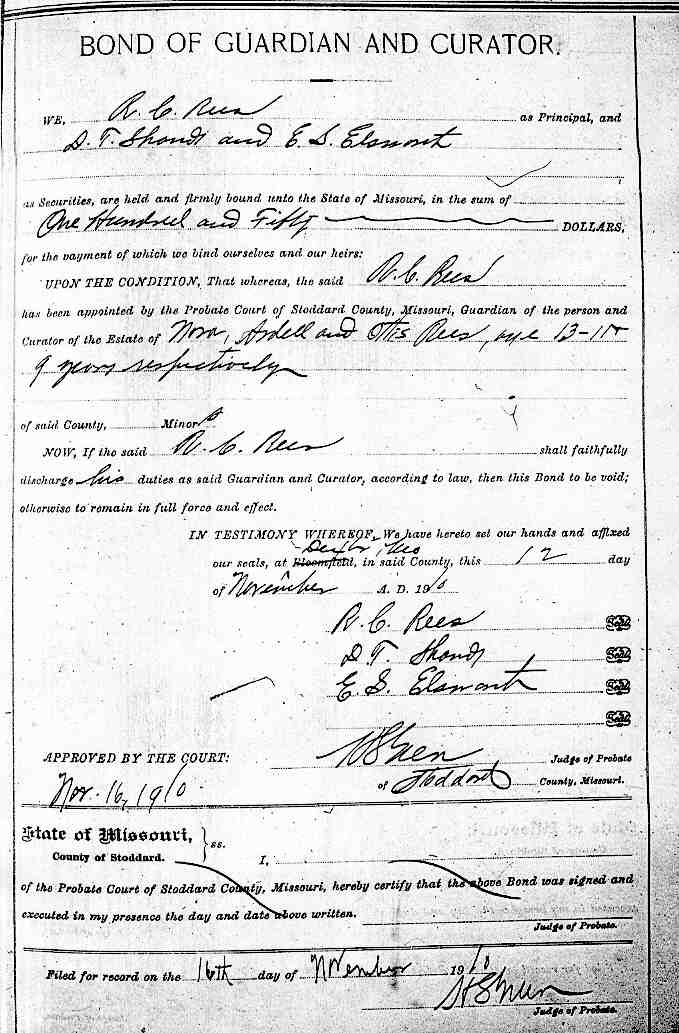 BOND OF GUARDIAN AND CURATOR.
WE, R. C. Rees as Principal, and
D. T. Shondt and E. S. Elsworth
as Securities, are held and firmly bound unto the State of Missouri, in the sum of
One Hundred and Fifty DOLLARS,
for the payment of which we bind ourselves and our heirs:
UPON THE CONDITION, That whereas, the said R. C. Rees
has been appointed by the Probate Court of Stoddard County, Missouri, Guardian of the person and
Curator of the Estate of Nora, Ardell and Otis Rees, age 13-11 &
9 years respectively
of said County, Minors
NOW, If the said R. C. Rees shall faithfully
discharge his duties as said Guardian and Curator, according to law, then this Bond to be void;
otherwise to remain in full force and effect.
IN TESTIMONY WHEREOF, We have hereto set our hands and affixed
Dexter Mo
our seals, at Bloomfield, in said County, this 12 day
of November A. D. 1910
R. C. Rees Seal
D T. Shondt Seal
E. S. Elsworth Seal
Seal
APPROVED BY THE COURT: Judge of Probate
Nov. 16, 1910. of Stoddard County, Missouri.
State of Missouri,
County of Stoddard. } ss. I,
of the Probate Court of Stoddard County, Missouri, hereby certify that the above Bond was signed and
executed in my presence the day and date above written.
Judge of Probate.
Filed for record on the 16th day of November 1910
Judge of Probate.